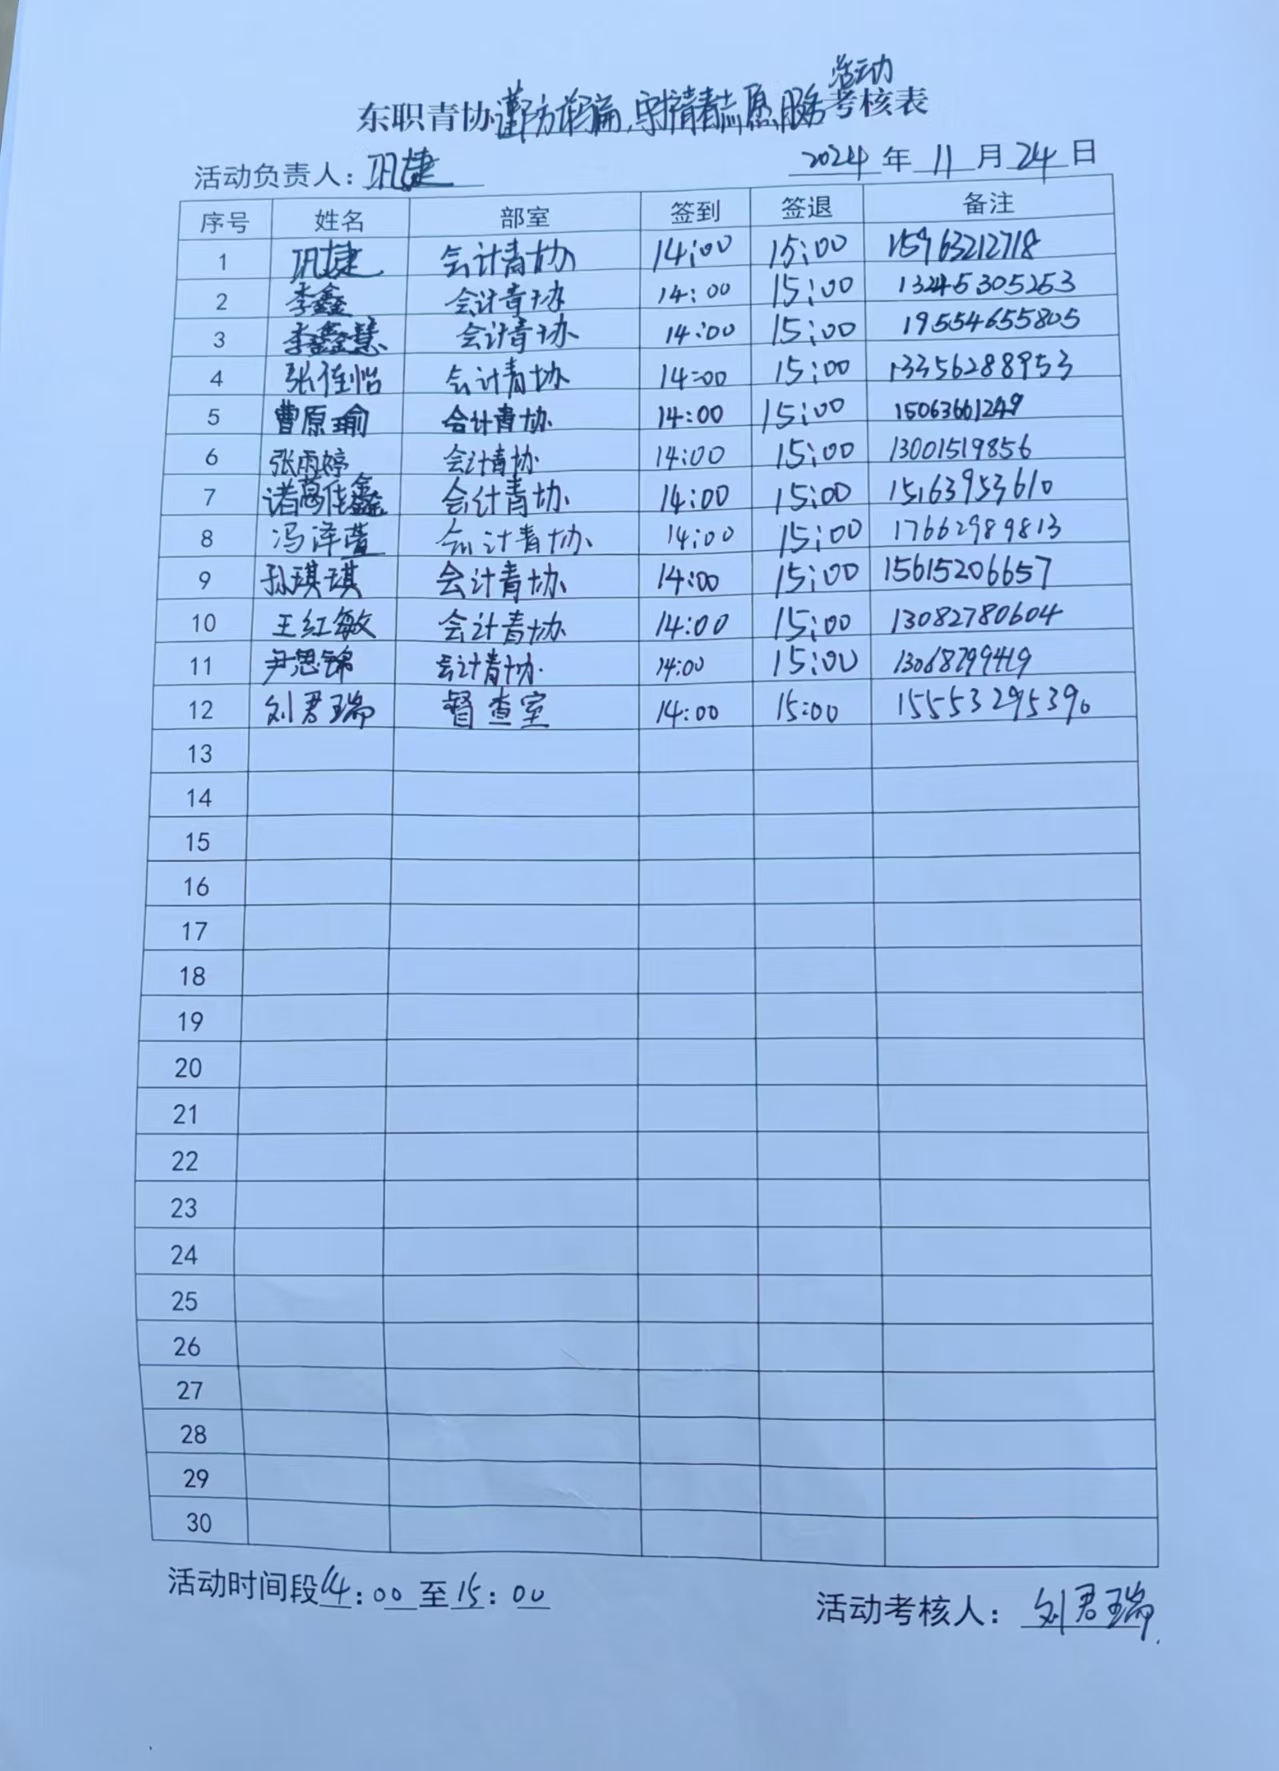 活动
东职青协谨防诈骗,守护青春志愿服务考核表
活动负责人: 巩捷 2024年11月24日
序号 姓名 部室 签到 签退 备注
1 巩捷 会计青协 14:00 15:00 15963212718
2 李鑫 会计青协 14:00 15:00 13245305253
3 李鑫慧 会计青协 14:00 15:00 19554655805
4 张佳怡 会计青协 14:00 15:00 13356288953
5 曹原瑜 会计青协 14:00 15:00 15063661249
6 张雨婷 会计青协 14:00 15:00 13001519856
7 诸葛佳鑫 会计青协 14:00 15:00 15163953610
8 冯泽萱 会计青协 14:00 15:00 17662989813
9 孙琪琪 会计青协 14:00 15:00 15615206657
10 王红敏 会计青协 14:00 15:00 13082780604
11 尹思锦 会计青协 14:00 15:00 13068799419
12 刘君瑞 督查室 14:00 15:00 15553295390
13
14
15
16
17
18
19
20
21
22
23
24
25
26
27
28
29
30
活动时间段14:00至15:00 活动考核人: 刘君瑞